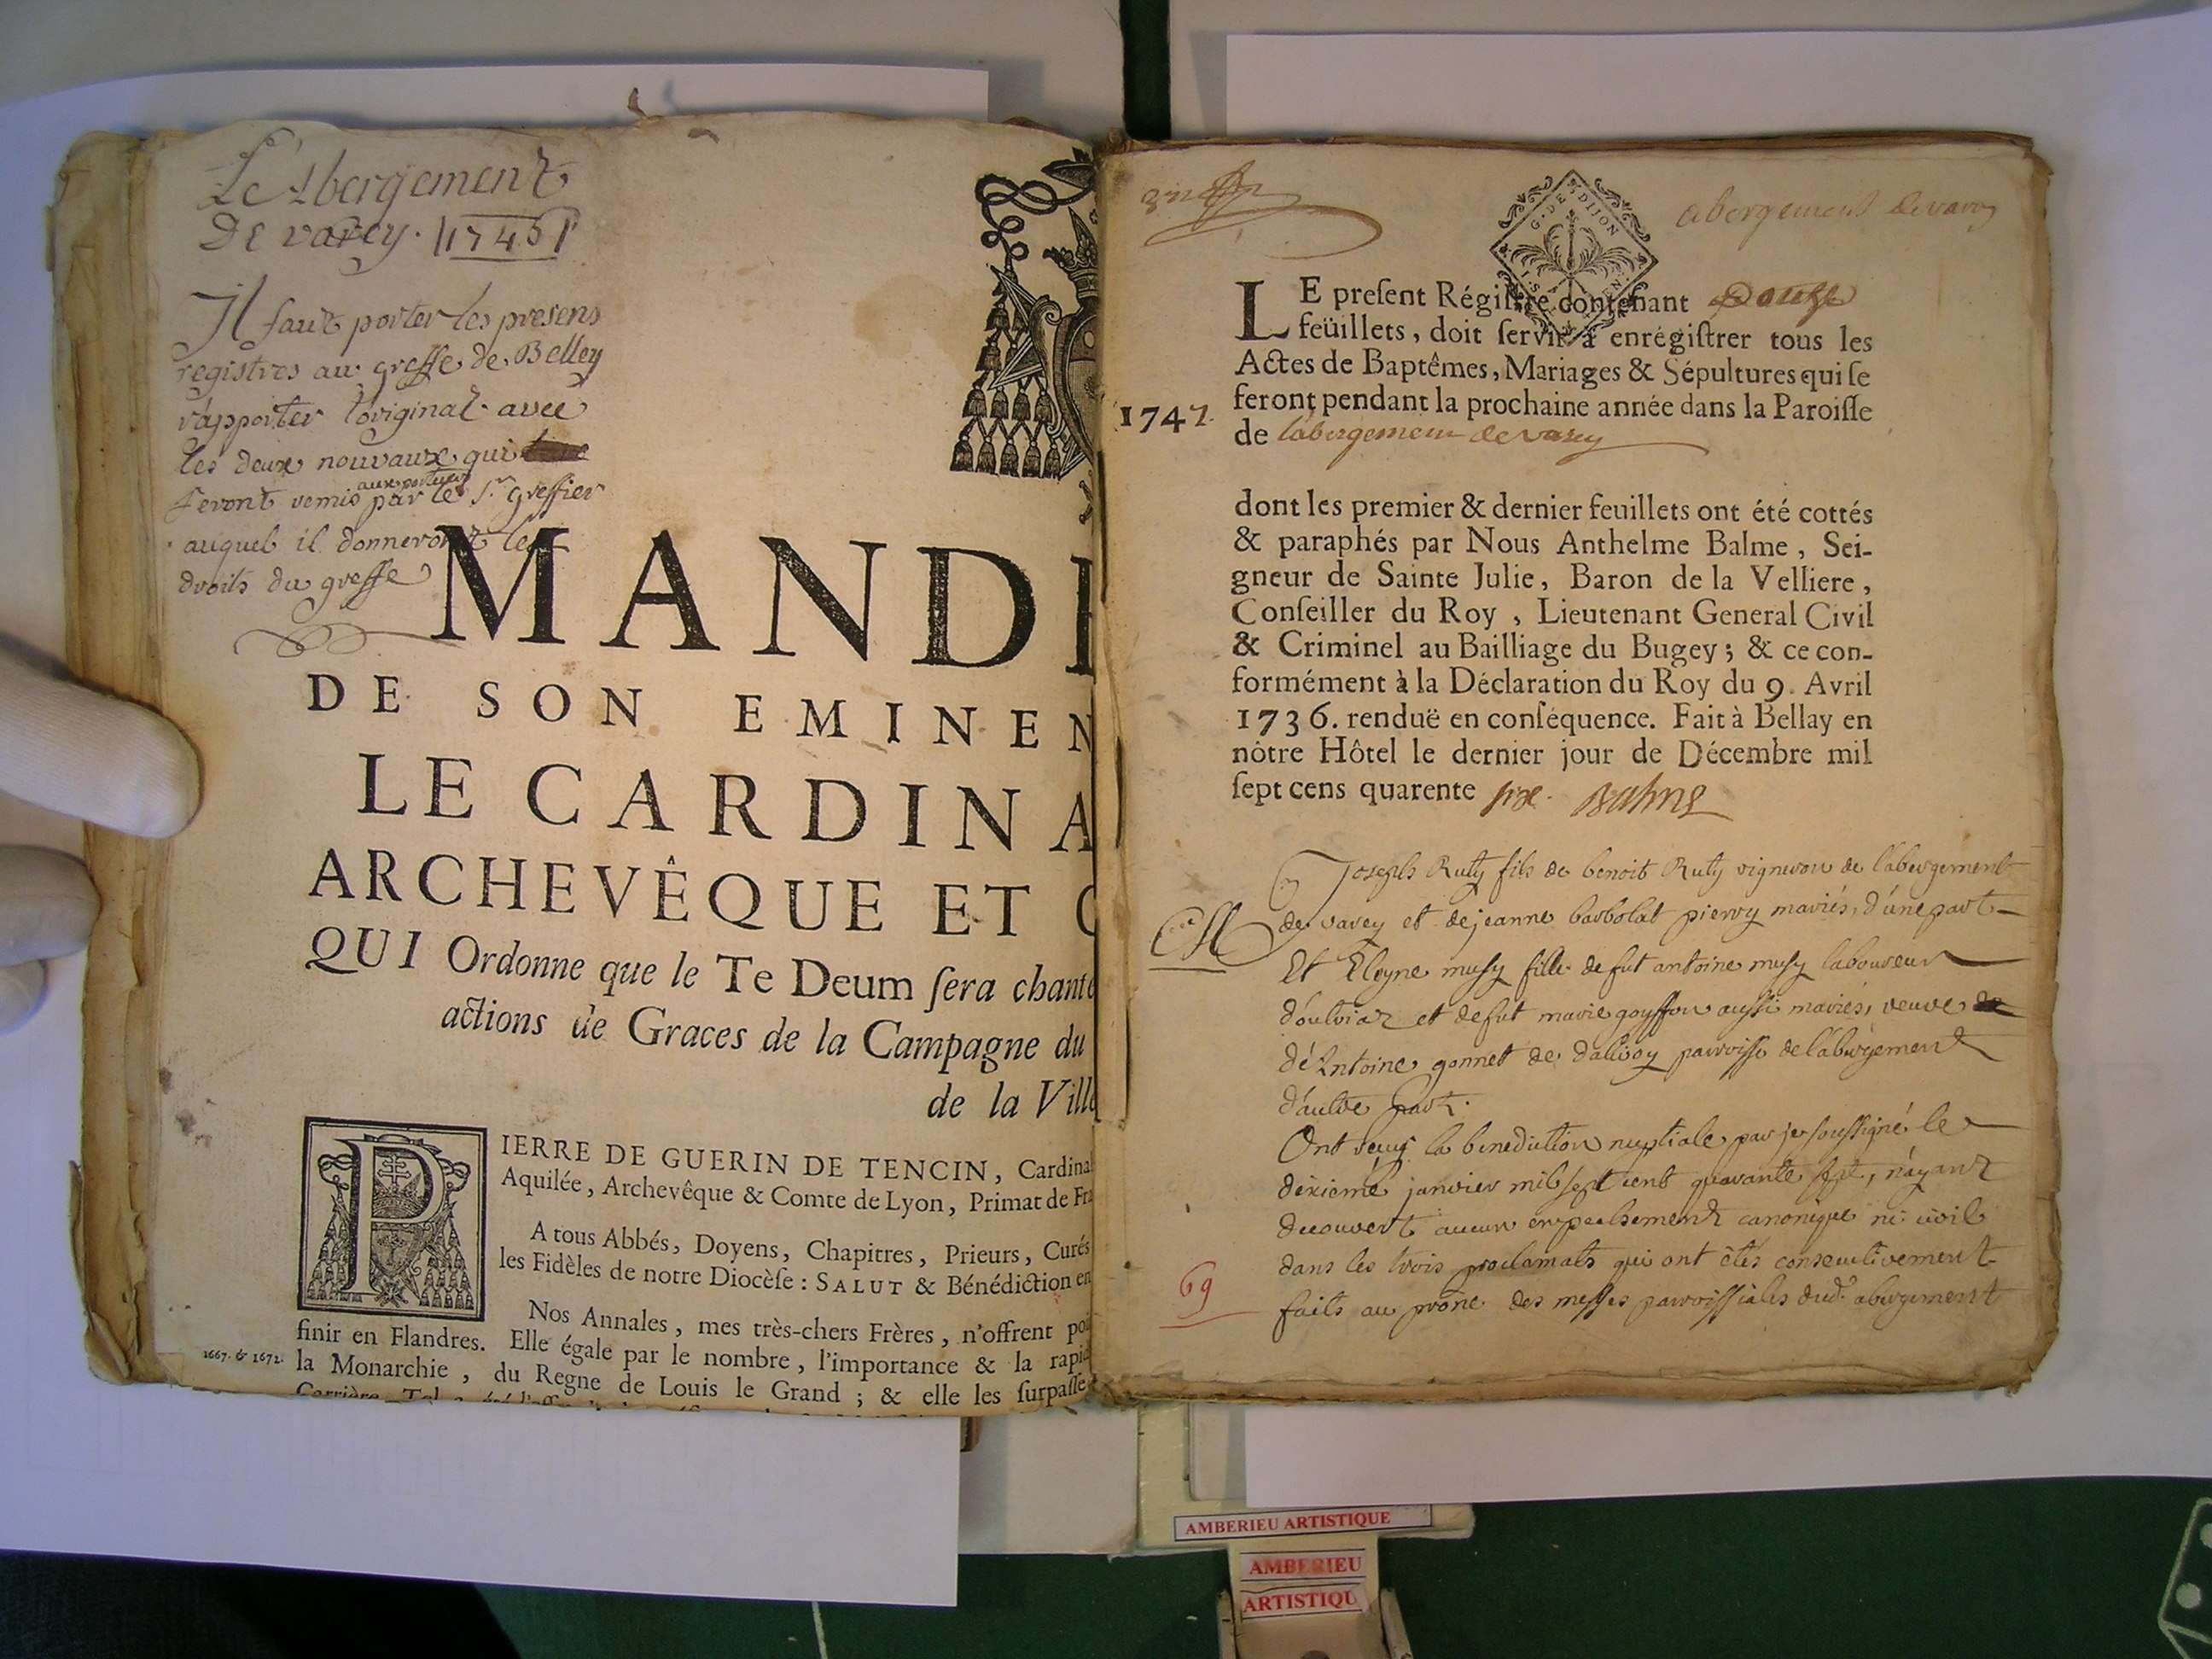 Le Abergement
De varey. 1745
Il faut porter les presens
registres au greffe de Belley
rapporter l'original avec
les deux nouvaux qui
seront remis par le Sr. greffier
auquel il donneront les
droits du greffe
MANDE
DE SON EMINEN
LE CARDINA
ARCHEVÊQUE ET C
QUI Ordonne que le Te Deum ſera chanté
actions de Graces de la Campagne du
de la Ville
PIERRE DE GUERIN DE TENCIN, Cardinal
Aquilée, Archevêque & Comte de Lyon, Primat de Fra
A tous Abbés, Doyens, Chapitres, Prieurs, Curés
les Fidèles de notre Diocèſe : SALUT & Bénédiction en
Nos Annales, mes très-chers Frères, n'offrent poi
finir en Flandres. Elle égale par le nombre, l'importance & la rapid
1667. & 1672. la Monarchie, du Regne de Louis le Grand ; & elle les ſurpaſſe
abergement de varey
G. DE DIJON
LE preſent Régiſtre contenant Douze
feüillets, doit ſervir à enrégiſtrer tous les
Actes de Baptêmes, Mariages & Sépultures qui ſe
1747. feront pendant la prochaine année dans la Paroiſſe
de labergement de varey
dont les premier & dernier feuillets ont été cottés
& paraphés par Nous Anthelme Balme, Sei-
gneur de Sainte Julie, Baron de la Velliere,
Conſeiller du Roy, Lieutenant General Civil
& Criminel au Bailliage du Bugey ; & ce con-
formément à la Déclaration du Roy du 9. Avril
1736. renduë en conſéquence. Fait à Bellay en
nôtre Hôtel le dernier jour de Décembre mil
ſept cens quarente six. Balme
Joseph Ruty fils de benoit Ruty vigneron de l'abergement
de varey et de jeanne barbolat pierry mariés, d'une part
Et Eleyne musy fille de fut antoine musy laboureur
d'oulviaz et de fut marie goyffon aussi mariés, veuve
de Antoine gonnet de dalivoy parroisse de l'abergement
d'aultre part.
Ont reçus la benediction nuptiale par je soussigné le
dixieme janvier mil sept cent quarante sept, n'ayant
decouvert aucun empechement canonique ni civil
dans les trois proclamats qui ont êtés consecutivement
69 faits au prône des messes parroissiales dud. abergement
AMBERIEU ARTISTIQUE
AMBERIEU
ARTISTIQU